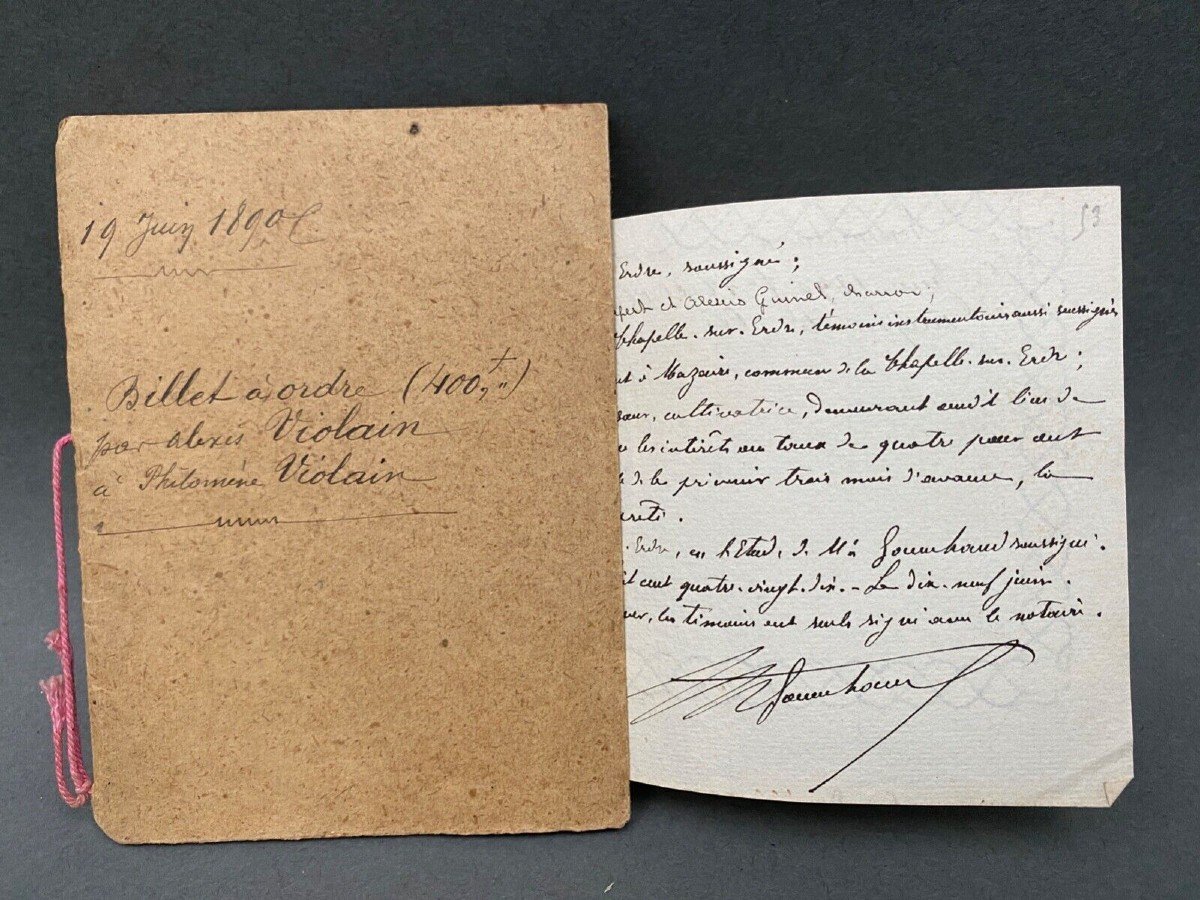 19 Juin 1890
Billet à ordre (400 f "")
par Alexis Violain
à Philomène Violain
53
Erdre, soussigné ;
et Alexis Guinel, charron,
Chapelle-sur-Erdre, témoins instrumentaires aussi soussignés
à Mazaire, commune de la Chapelle-sur-Erdre ;
sœur, cultivatrice, demeurant audit lieu de
les intérêts au taux de quatre pour cent
de le premier trois mois d'avance, la
Erdre, en l'Etude, de Me soussigné.
cent quatre-vingt-dix.- Le dix-neuf juin.
les témoins ont seuls signé avec le notaire.